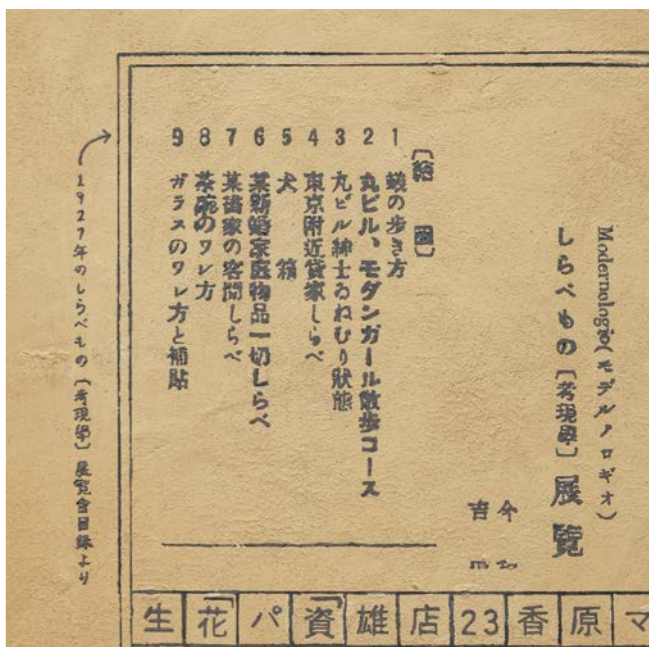 Modernologio(モデルノロギオ)
しらべもの〔考現學〕展覧
今和
吉
〔繪圖〕
1 蟻の歩き方
2 丸ビル、モダンガール散歩コース
3 丸ビル紳士ゐねむり狀態
4 東京附近貸家しらべ
5 犬箱
6 某新婚家庭物品一切しらべ
7 某諸家の客間しらべ
8 茶碗のワレ方
9 ガラスのワレ方と補貼
1927年のしらべもの〔考現學〕展覧會目録より
生「花パ「資雄店23香原マ